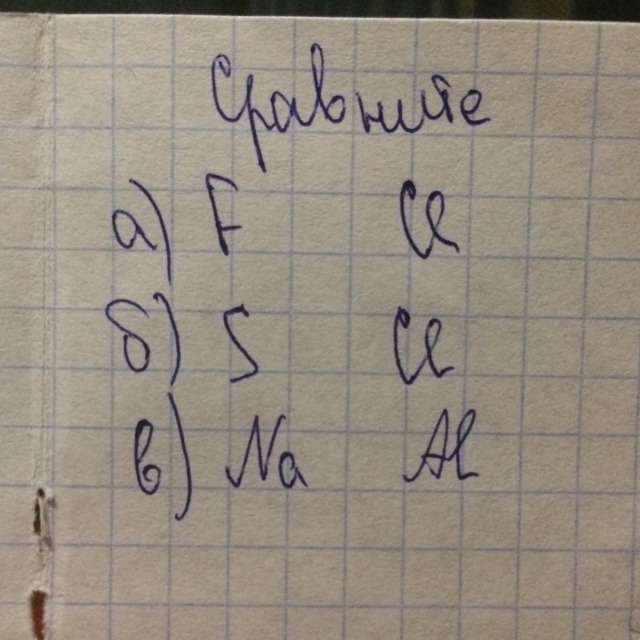 Сравните
а) F Cl
б) S Cl
в) Na Al